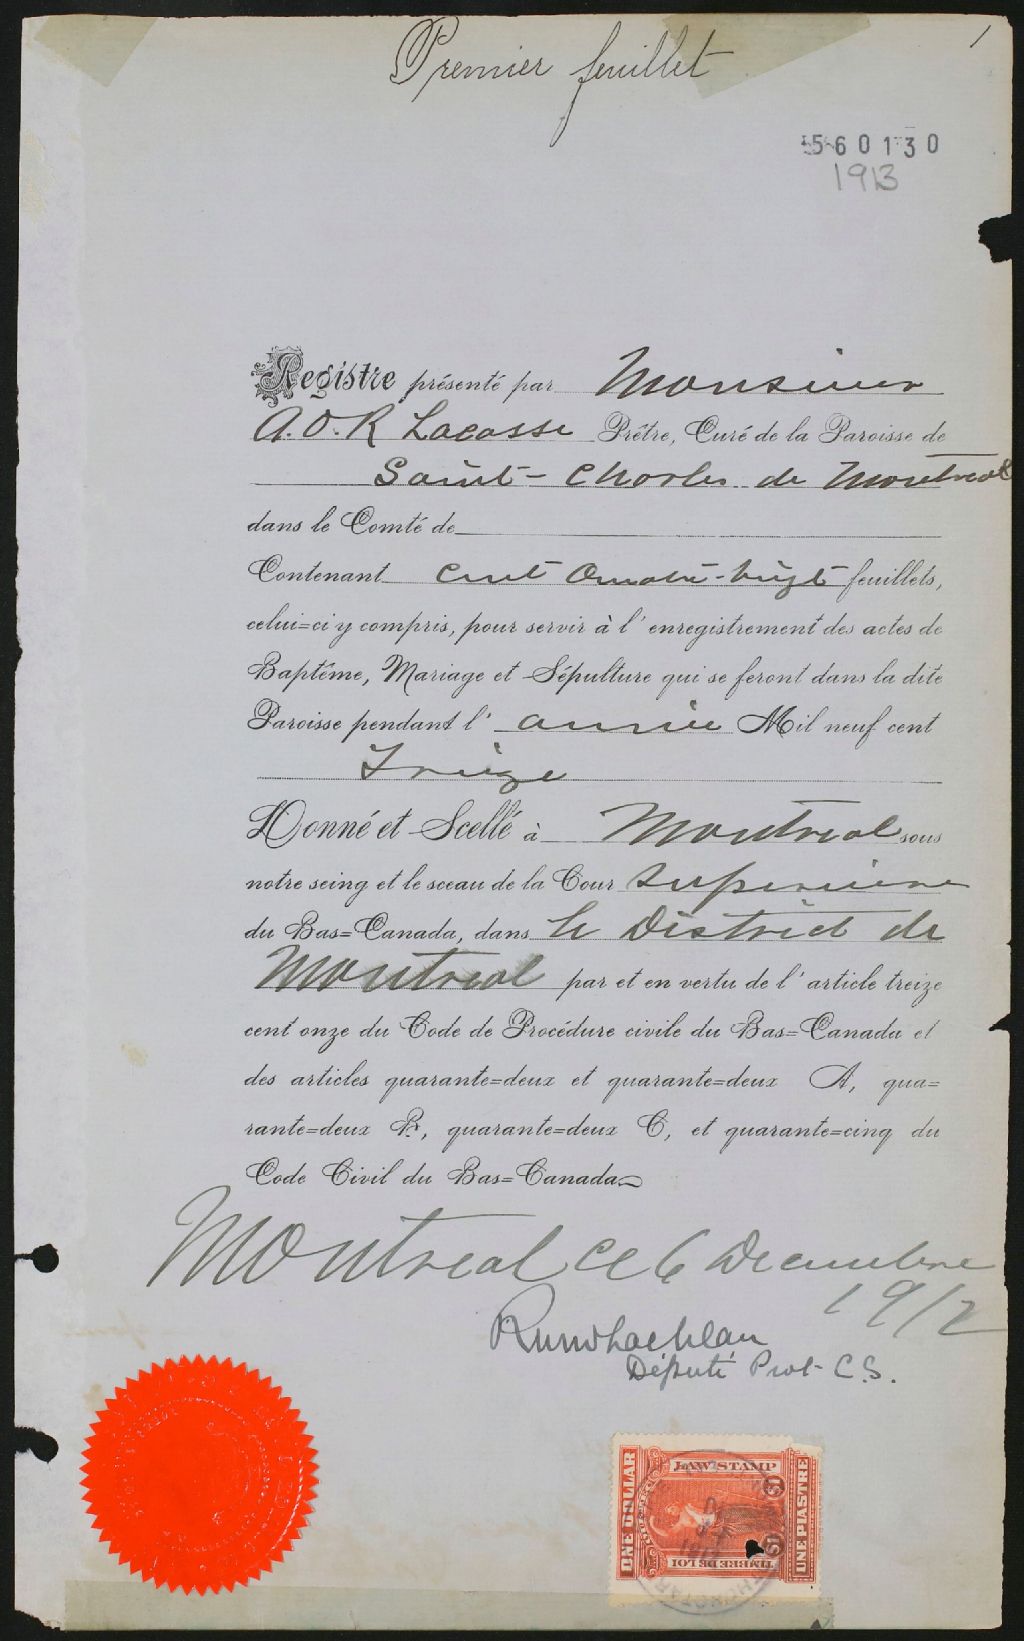 Premier feuillet
1
560130
1913
Registre présenté par Monsieur
A.O.R Lacasse Prêtre, Curé de la Paroisse de
Saint-Charles de Montréal
dans le Comté de
Contenant cent Quatre-vingt feuillets,
celui=ci y compris, pour servir à l'enregistrement des actes de
Baptême, Mariage et Sépulture qui se feront dans la dite
Paroisse pendant l'année Mil neuf cent
Treize
Donné et Scellé à Montréal sous
notre seing et le sceau de la Cour Supérieure
du Bas=Canada, dans le District de
Montréal par et en vertu de l'article treize
cent onze du Code de Procédure civile du Bas=Canada et
des articles quarante=deux et quarante=deux A, qua=
rante=deux B, quarante=deux C, et quarante=cinq du
Code Civil du Bas=Canada.
Montreal ce 6 Decembre
1912
Député Prot C.S.
LAW STAMP
ONE DOLLAR
UNE PIASTRE
$1
$1
TIMBRE DE LOI